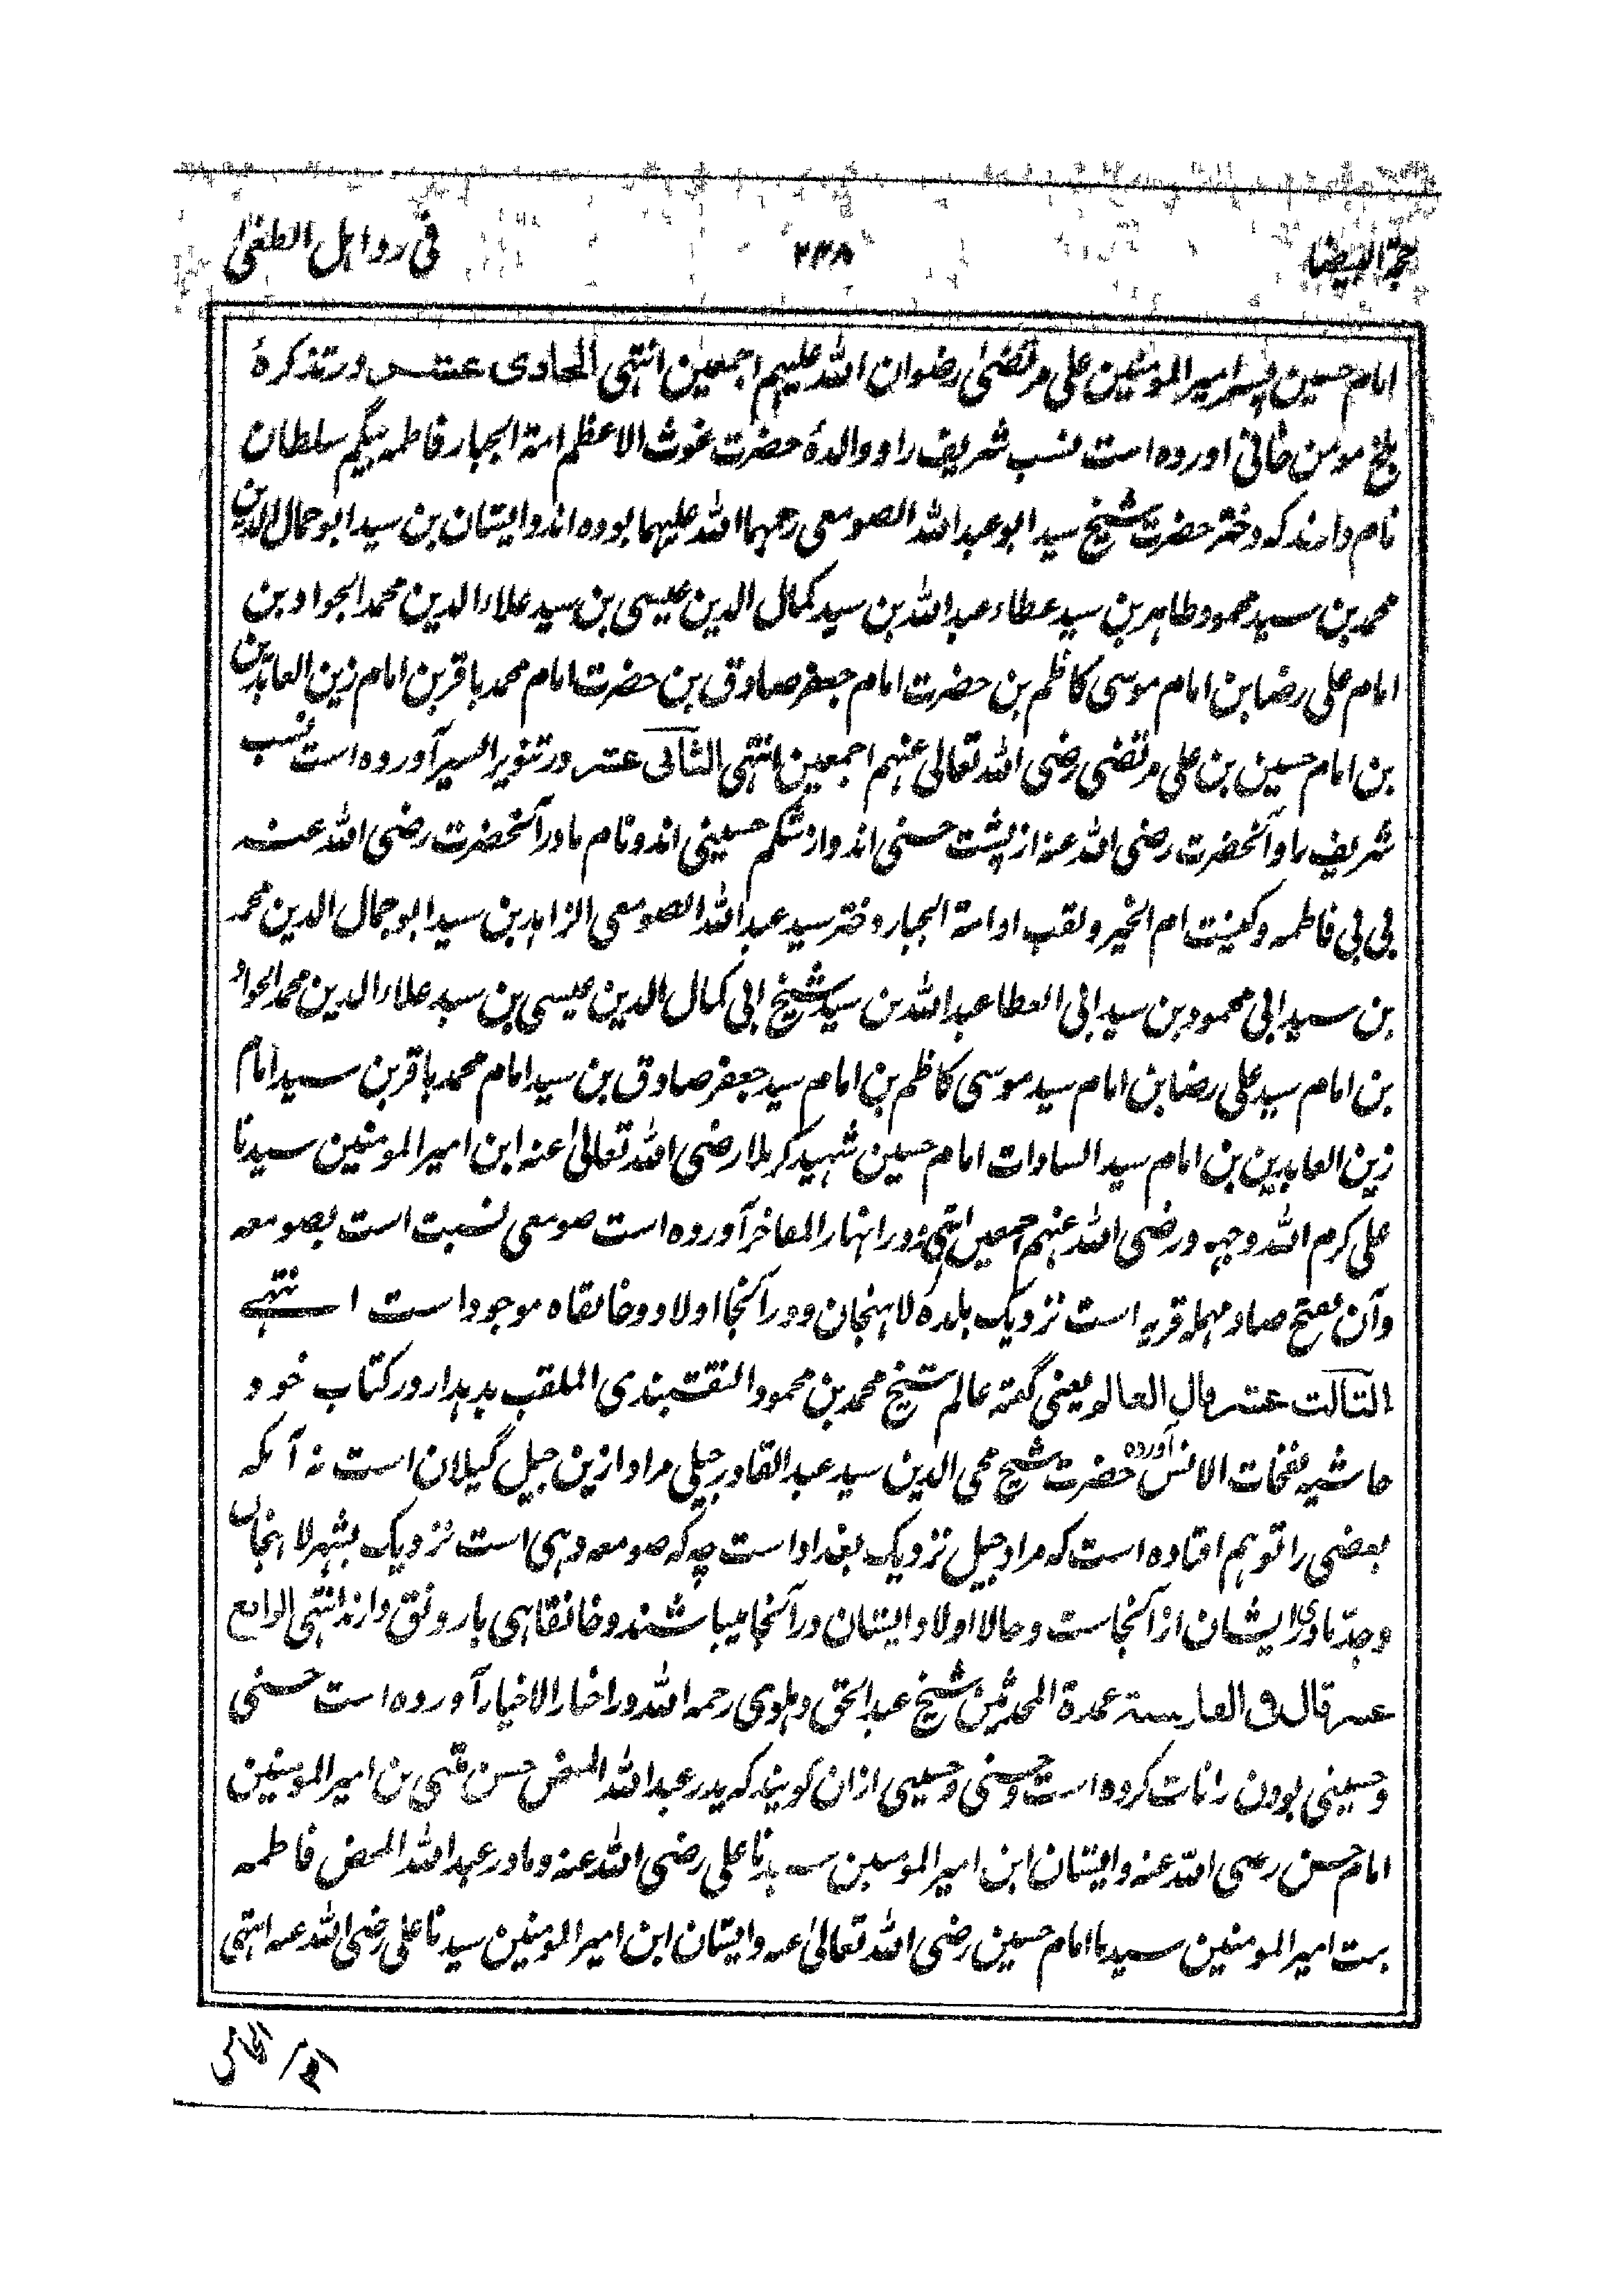 حجة البیضاء ۲۳۸ فی رد اہل الطغیٰ
امام حسین پسر امیر المومنین علی مرتضیٰ رضوان اللہ علیہم اجمعین انتہی الحادی عشر در تذکرۂ
بلخ مومن خانی اورده است نسب شریف را و والدۂ حضرت غوث الاعظم امة الجبار فاطمہ بیگم سلطان
نام دارند کہ دختر حضرت شیخ سید ابو عبد اللہ الصومعی رحمہما اللہ علیہما بوده اند و ایشان بن سید ابو جمال الدین
محمد بن سید محمود طاہر بن سید عطاء عبد اللہ بن سید کمال الدین عیسی بن سید علاء الدین محمد الجواد بن
امام علی رضا بن امام موسی کاظم بن حضرت امام جعفر صادق بن حضرت امام محمد باقر بن امام زین العابدین
بن امام حسین بن علی مرتضی رضی اللہ تعالی عنہم اجمعین انتہی الثانی عشر در تنویر السیر آورده است نسب
شریف ما و آنحضرت رضی اللہ عنہ از پشت حسنی اند و از شکم حسینی اند و نام مادر آنحضرت رضی اللہ عنہ
بی بی فاطمہ و کنیت ام الخیر و لقب او امة الجبار دختر سید عبد اللہ الصومعی الزاہد بن سید ابو جمال الدین محمد
بن سید ابی محمود بن سید ابی العطا عبد اللہ بن سید شیخ ابی کمال الدین عیسی بن سید علاء الدین محمد الجواد
بن امام سید علی رضا بن امام سید موسی کاظم بن امام سید جعفر صادق بن سید امام محمد باقر بن سید امام
زین العابدین بن امام سید السادات امام حسین شہید کربلا رضی اللہ تعالیٰ عنہ ابن امیر المومنین سیدنا
علی کرم اللہ وجہہ و رضی اللہ عنہم اجمعین انتہی و در انہار المفاخر آورده است صومعی نسبت است بصومعہ
و آن بفتح صاد مہملہ قریہ است نزدیک بلده لاہنجان و در آنجا اولاد و خانقاه موجود است انتہے
الثالث عشر قال العالم یعنی گفتہ عالم شیخ محمد بن محمود النقشبندی الملقب بدہدار در کتاب خود
حاشیہ نفحات الانس آورده حضرت شیخ محی الدین سید عبد القادر جیلی مراد ازین جیل گیلان است نہ آنکہ
بعضی را توہم افتاده است کہ مراد جیل نزدیک بغداد است چہ کہ صومعہ دہی است نزدیک بشہر لاہنجان
و جدّ مادری ایشان از آنجاست و حالا اولاد ایشان در آنجا میباشند و خانقاہی با رونق دارند انتہی الرابع
عشر قال فی الفارسیة عمدة المحدثین شیخ عبد الحق دہلوی رحمہ اللہ در اخبار الاخیار آورده است حسنی
و حسینی بودن را اثبات کرده است و حسنی و حسینی ازان گویند کہ پدر عبد اللہ المحض حسن مثنی بن امیر المومنین
امام حسن رضی اللہ عنہ و ایشان ابن امیر المومنین سیدنا علی رضی اللہ عنہ و مادر عبد اللہ المحض فاطمہ
بنت امیر المومنین سیدنا امام حسین رضی اللہ تعالیٰ عنہ و ایشان ابن امیر المومنین سیدنا علی رضی اللہ عنہ انتہی